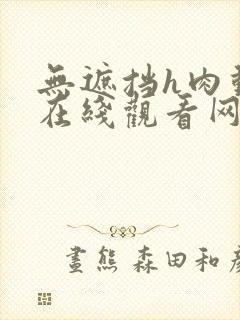 無遮挡h肉動
在綫觀看网
畫熊 森田和彥